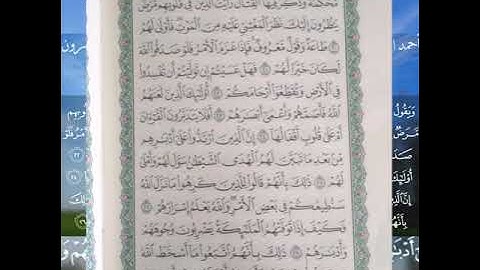 مُّحْكَمَةٌ وَذُكِرَ فِيهَا الْقِتَالُ رَأَيْتَ الَّذِينَ فِي قُلُوبِهِم مَّرَضٌ
يَنظُرُونَ إِلَيْكَ نَظَرَ الْمَغْشِيِّ عَلَيْهِ مِنَ الْمَوْتِ فَأَوْلَىٰ لَهُمْ
۝ طَاعَةٌ وَقَوْلٌ مَّعْرُوفٌ فَإِذَا عَزَمَ الْأَمْرُ فَلَوْ صَدَقُوا اللَّهَ
لَكَانَ خَيْرًا لَّهُمْ ۝ فَهَلْ عَسَيْتُمْ إِن تَوَلَّيْتُمْ أَن تُفْسِدُوا
فِي الْأَرْضِ وَتُقَطِّعُوا أَرْحَامَكُمْ ۝ أُولَٰئِكَ الَّذِينَ لَعَنَهُمُ
اللَّهُ فَأَصَمَّهُمْ وَأَعْمَىٰ أَبْصَٰرَهُمْ ۝ أَفَلَا يَتَدَبَّرُونَ الْقُرْءَانَ
أَمْ عَلَىٰ قُلُوبٍ أَقْفَالُهَا ۝ إِنَّ الَّذِينَ ارْتَدُّوا عَلَىٰ أَدْبَٰرِهِم
مِّن بَعْدِ مَا تَبَيَّنَ لَهُمُ الْهُدَى الشَّيْطَٰنُ سَوَّلَ لَهُمْ وَأَمْلَىٰ
لَهُمْ ۝ ذَٰلِكَ بِأَنَّهُمْ قَالُوا لِلَّذِينَ كَرِهُوا مَا نَزَّلَ اللَّهُ
سَنُطِيعُكُمْ فِي بَعْضِ الْأَمْرِ وَاللَّهُ يَعْلَمُ إِسْرَارَهُمْ ۝
فَكَيْفَ إِذَا تَوَفَّتْهُمُ الْمَلَٰئِكَةُ يَضْرِبُونَ وُجُوهَهُمْ
وَأَدْبَٰرَهُمْ ۝ ذَٰلِكَ بِأَنَّهُمُ اتَّبَعُوا مَا أَسْخَطَ اللَّهَ